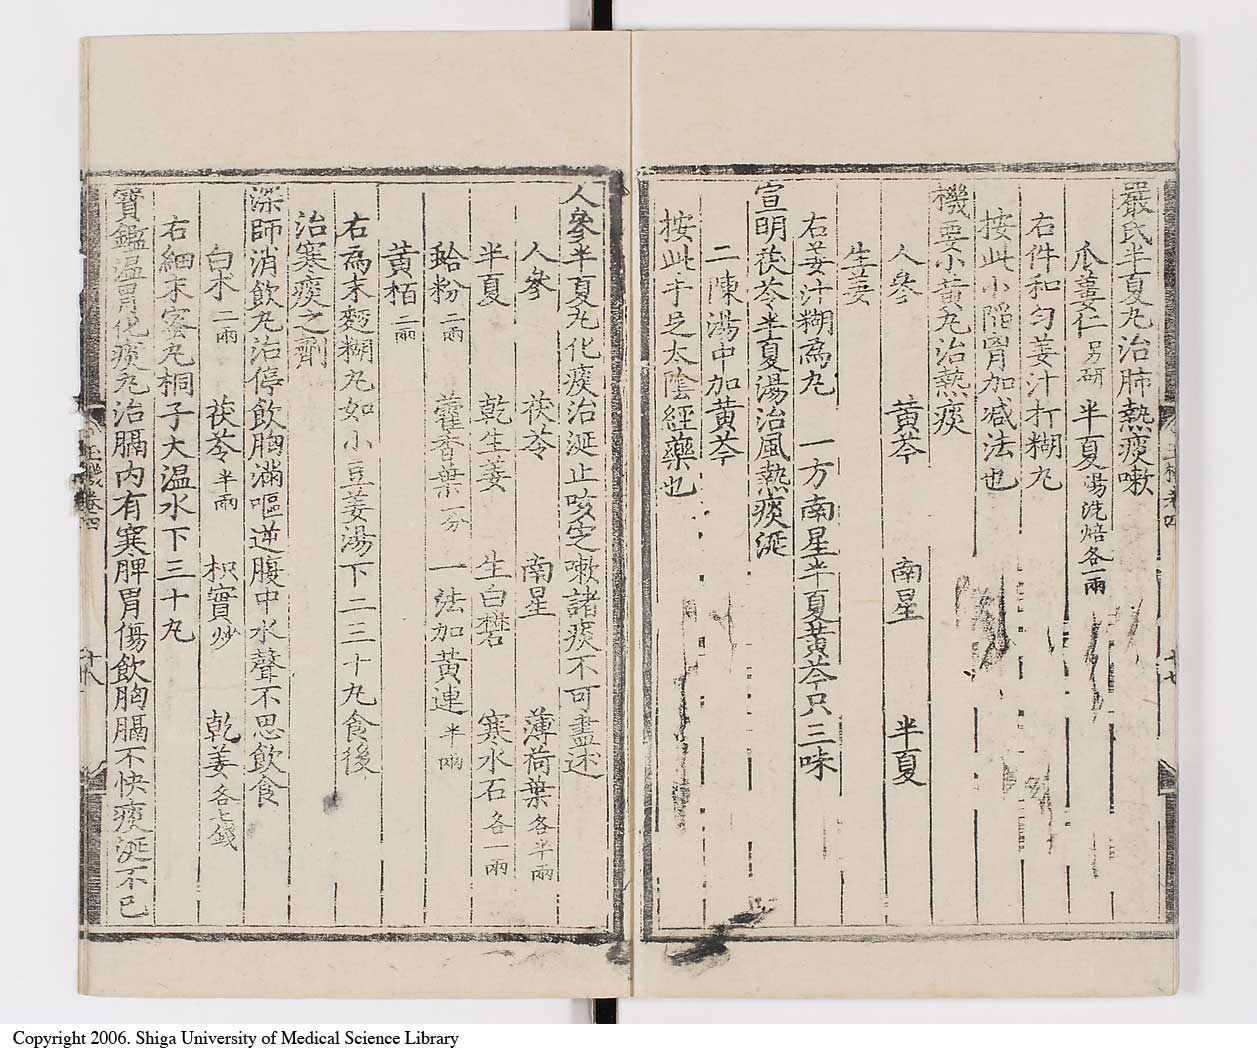 嚴氏半夏丸治肺熱痰嗽
瓜蔞仁另研 半夏湯洗焙各一兩
右件和匀姜汁打糊丸
按此小陷胷加减法也
機要小黄丸治熱痰
人參 黄芩 南星 半夏
生姜
右姜汁糊為丸 一方南星半夏黄芩只三味
宣明茯苓半夏湯治風熱痰涎
二陳湯中加黄芩
按此手足太陰經藥也
人參半夏丸化痰治涎止咳定嗽諸痰不可盡述
人參 茯苓 南星 薄荷葉各半兩
半夏 乾生姜 生白礬 寒水石各一兩
蛤粉二兩 藿香葉一分 一法加黄連半兩
黄栢二兩
右為末麪糊丸如小豆姜湯下二三十丸食後
治寒痰之劑
深師消飲丸治停飲胸滿嘔逆腹中水聲不思飲食
白朮二兩 茯苓半兩 枳實炒 乾姜各七錢
右細末蜜丸桐子大温水下三十丸
寳鑑温胃化痰丸治膈内有寒脾胃傷飲胸膈不快痰涎不已
Copyright 2006. Shiga University of Medical Science Library